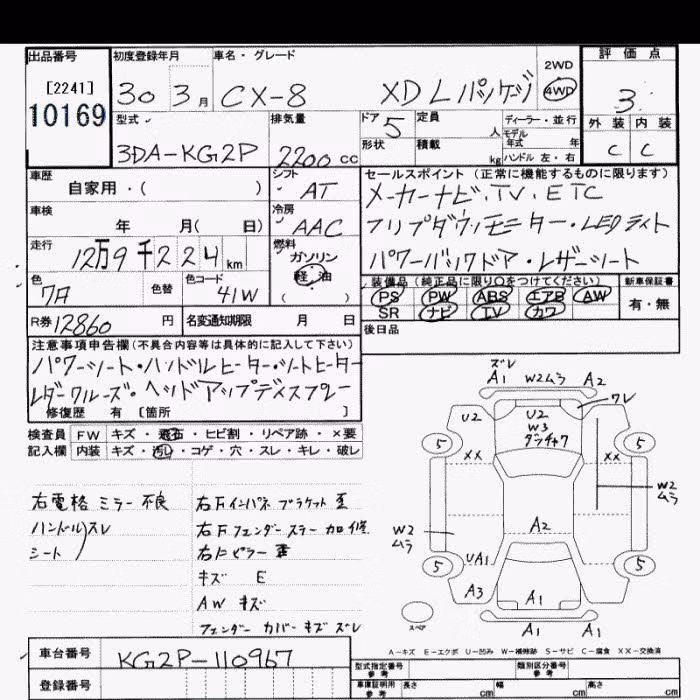 出品番号
[2241]
10169
初度登録年月
30 3月
車名・グレード
CX-8 XD Lパッケージ
2WD
4WD
評価点
3
外装 内装
C C
型式
3DA-KG2P
排気量
2200cc
ドア 5
形状
定員 人
積載 kg
ディーラー・並行
モデル年式 年式
ハンドル 左・右
車歴
自家用・( )
シフト
AT
車検
年 月( 日)
冷房
AAC
走行
12万9千224km
燃料
ガソリン
軽油
( )
色
7A
色替
色コード
41W
R券 12860円
名変通知期限 月 日
セールスポイント(正常に機能するものに限ります)
メーカーナビ・TV・ETC
フリップダウンモニター・LEDライト
パワーバックドア・レザーシート
装備品(純正品に限り○をつけてください)
PS PW ABS エアB AW
SR ナビ TV カワ
新車保証書
有・無
後日品
注意事項申告欄(不具合内容等は具体的に記入して下さい)
パワーシート・ハンドルヒーター・シートヒーター
レダークルーズ・ヘッドアップディスプレー
修復歴 有 [箇所 ]
検査員 FW キズ・飛石・ヒビ割・リペア跡・×要
記入欄 内装 キズ・汚れ・コゲ・穴・スレ・キレ・破レ
右電格ミラー不良
ハンドルスレ
シート
右Fインパネブラケット歪
右Fフェンダーステー加修
右Fピラー歪
キズ E
AW キズ
フェンダーカバーキズ ズレ
ズレ
A1 W2ムラ A2
U2 U2 ワレ
W3
ダッチャク
5 5
XX XX
W2
ムラ
W2
ムラ
A2
UA1
5 5
A3 A1
A1 A1
スペア
A-キズ E-エクボ U-凹み W-補修跡 S-サビ C-腐食 XX-交換済
車台番号 KG2P-110967
登録番号
型式指定番号
参考
類別区分番号
参考
車庫証明用
参考
長さ cm 幅 cm 高さ cm